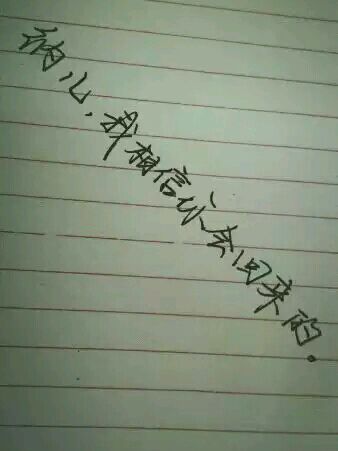 纳儿，我相信你会回来的。